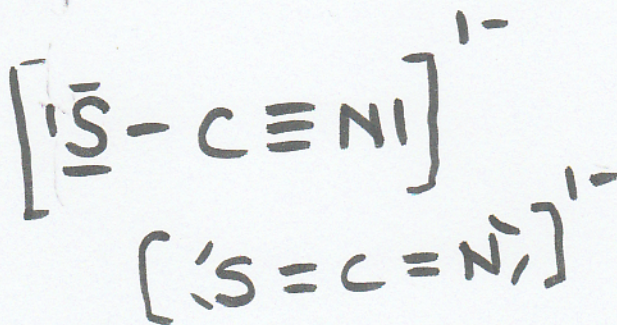 [|S̲̅ – C ≡ N|]¹⁻
[S = C = N]¹⁻